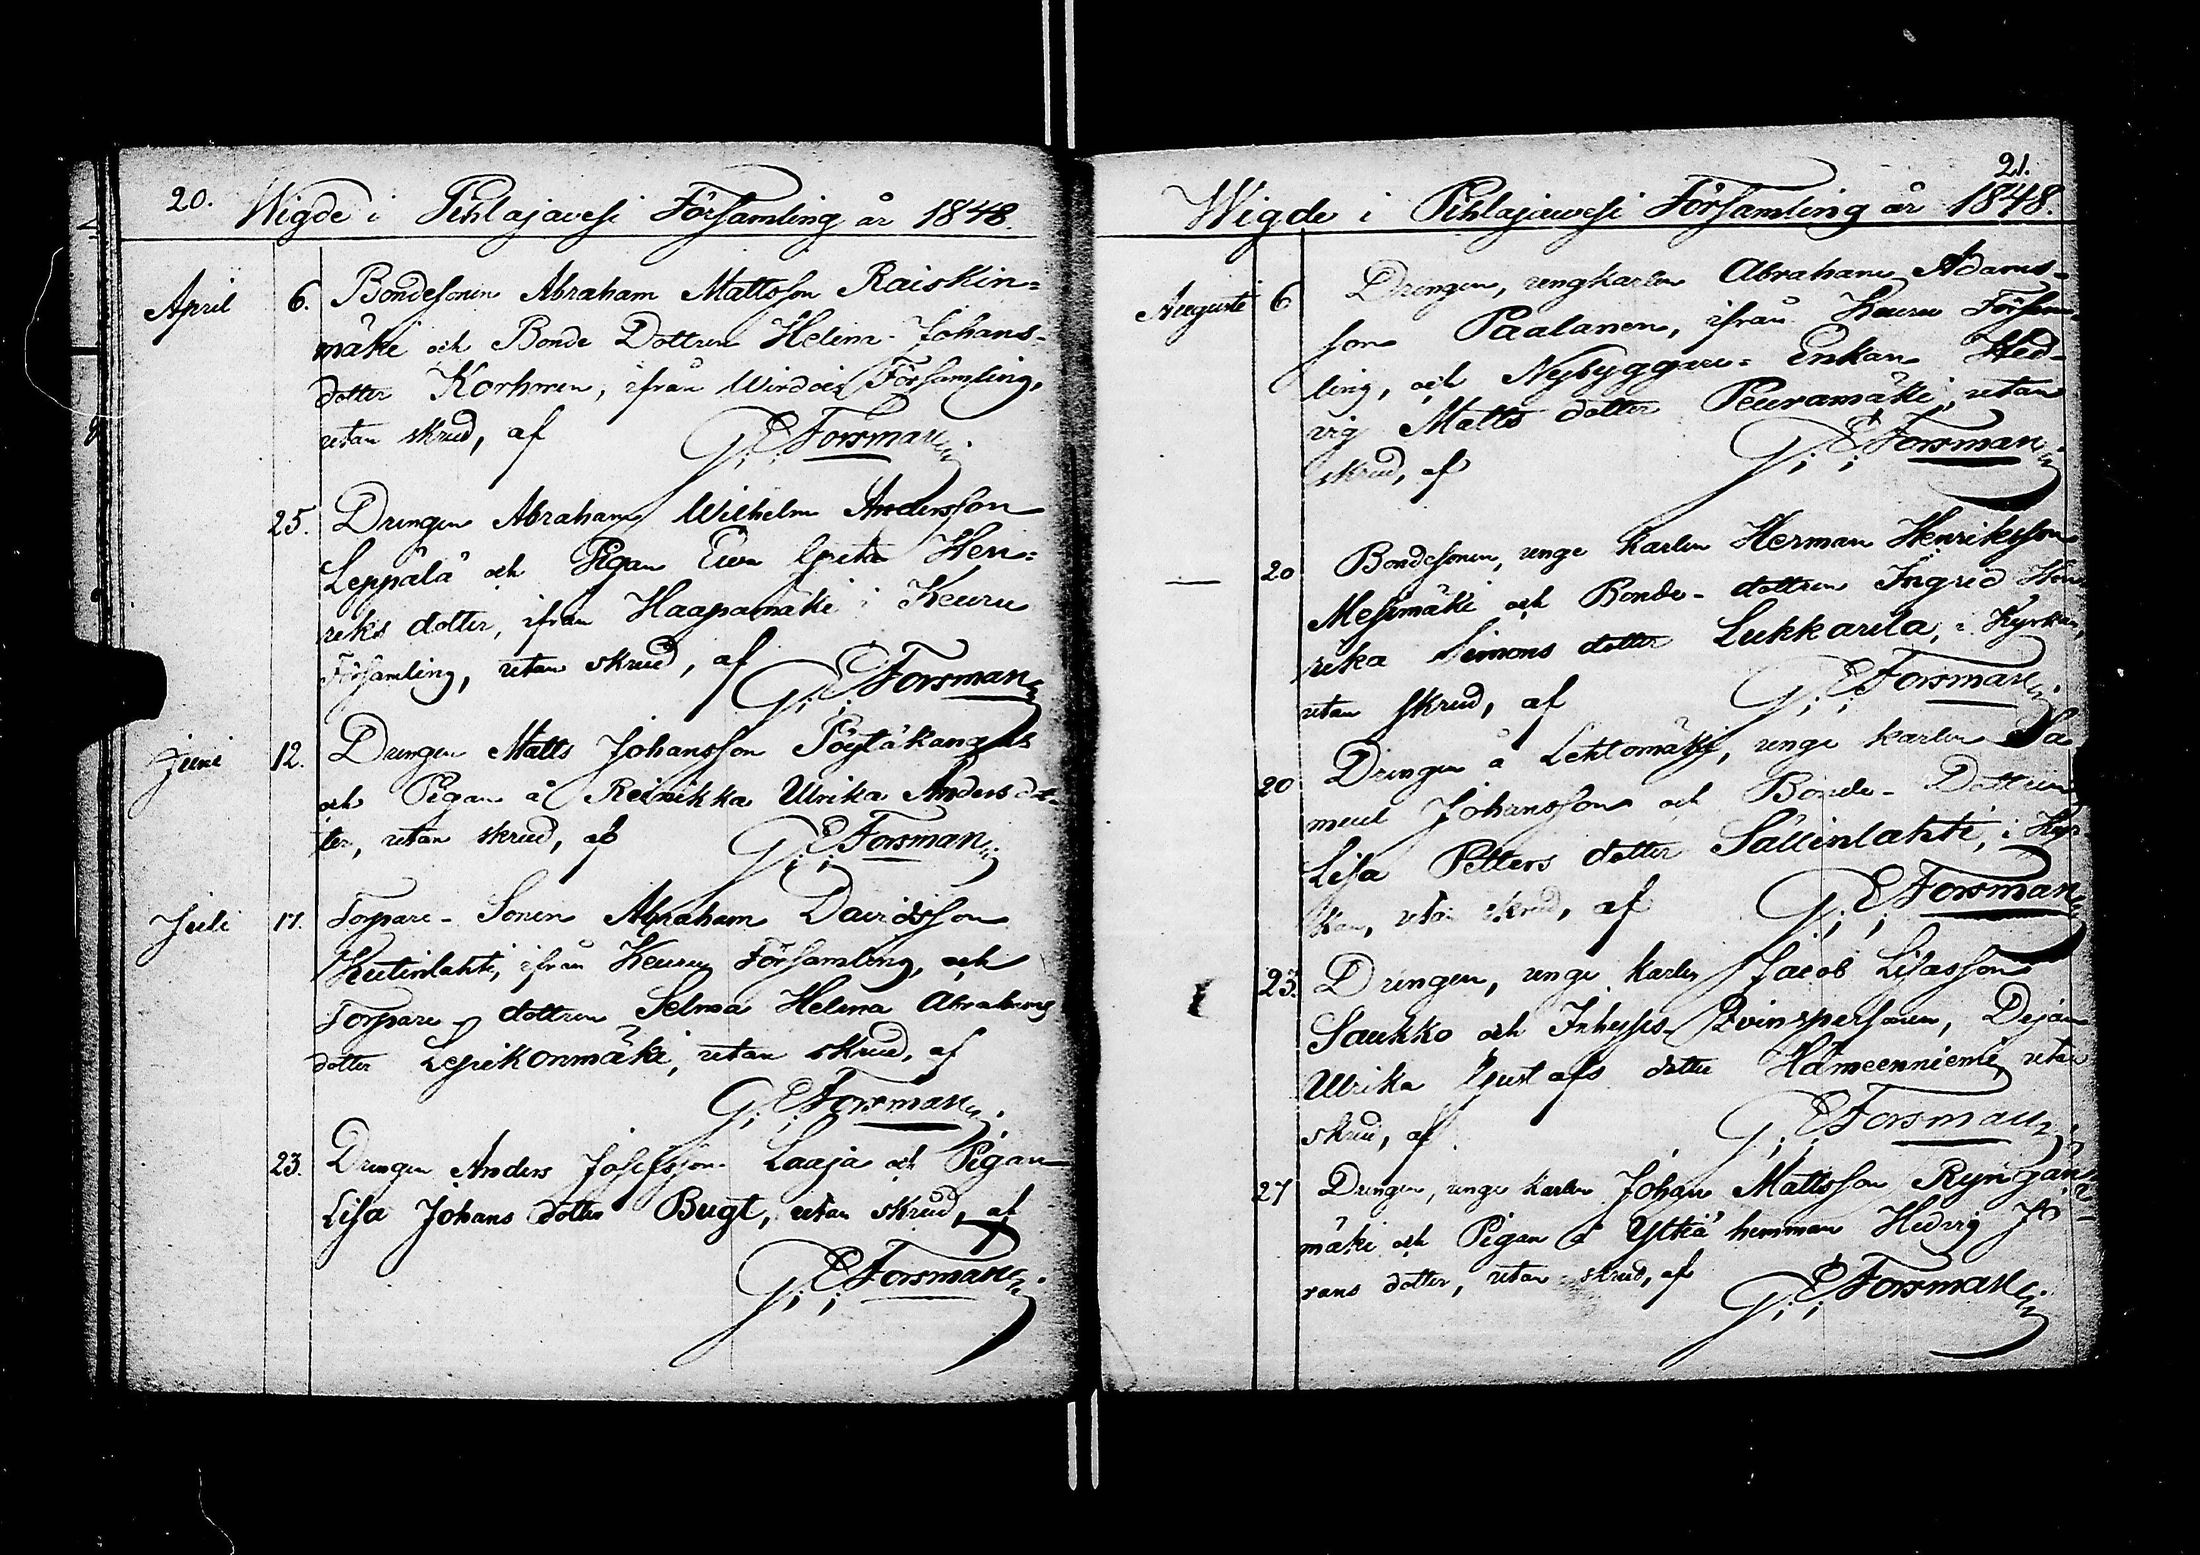 20. Wigde i Pihlajavesi Församling år 1848.
April 6. Bondesonen Abraham Mattsson Raiskin=
mäki och Bonde Dottren Helena Johans-
dotter Korhonen, ifrån Wirdois Församling,
utan skrud, af G: E: Forsman
25. Drengen Abraham Wilhelm Andersson
Leppälä och Pigan Eva Greta Hen=
riks dotter, ifrån Haapamäki i Keuru
Församling, utan skrud, af G: E: Forsman
Juni 12. Drengen Matts Johansson Pöytäkangas
och Pigan å Reinikka Ulrika Anders dot-
ter, utan skrud, af G: E: Forsman
Juli 17. Torpare-Sonen Abraham Davidsson
Kutinlahti, ifrån Keuru Församling, och
Torpare dottren Selma Helena Abrahams
dotter Lepikonmäki, utan skrud, af
G: E: Forsman
23. Drengen Anders Josefsson Laaja och Pigan
Lisa Johans dotter Bugt, utan skrud, af
G: E: Forsman
21.
Wigde i Pihlajavesi Församling år 1848.
Augusti 6 Drengen, ungkarlen Abraham Adams-
son Paalanen, ifrån Keuru Försam-
ling, och Nybyggare-Enkan Hed-
vig Matts dotter Peuramäki, utan
skrud, af G: E: Forsman
— 20 Bondesonen, unge karlen Herman Henriksson
Mesimäki och Bonde-dottren Ingrid Hen
rika Simons dotter Lukkarila, i Kyrkan,
utan skrud, af G: E: Forsman
20 Drengen å Lehtomäki, unge karlen Sa-
muel Johansson och Bonde-Dottren
Lisa Petters dotter Sällinlahti, i Kyr-
kan, utan skrud, af G: E: Forsman
23. Drengen, unge karlen Jacob Lisasson
Saukko och Inhyses-Qvinspersonen, Dejan
Ulrika Gustafs dotter Hämeenniemi, utan
skrud, af G: E: Forsman
27 Drengen, unge karlen Johan Mattsson Ryngän-
mäki och Pigan å Ylhä hemman Hedvig Jö-
rans dotter, utan skrud, af G: E: Forsman